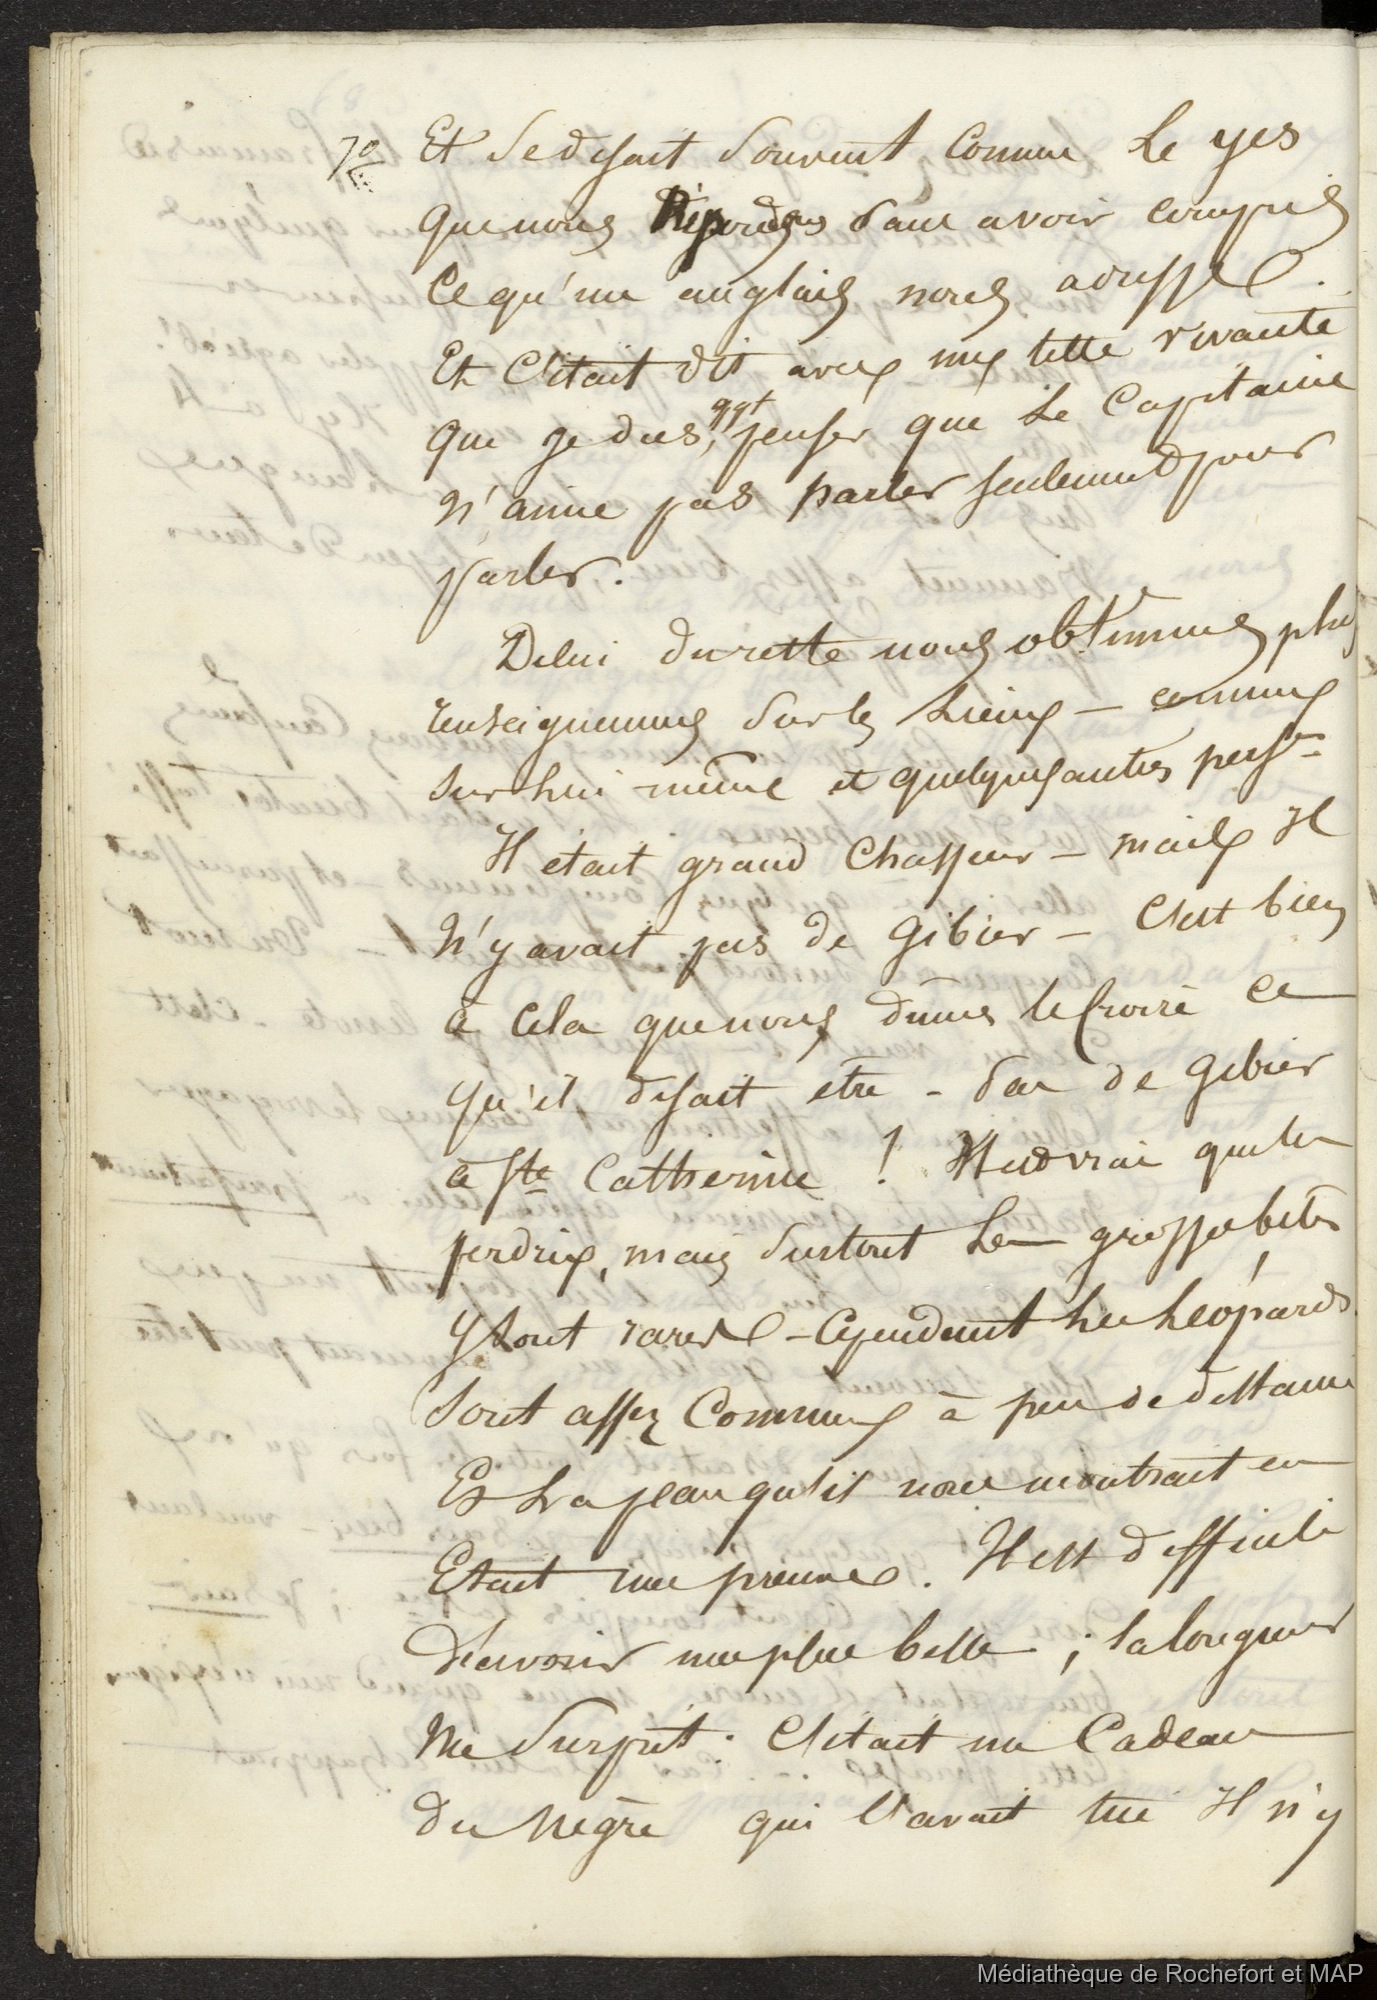 70
Et se disait souvent comme le yes
que nous Répondons sans avoir compris
ce qu'un anglais nous adresse.
Et c'était dit avec une telle
que je dus, qqt penser que le Capitaine
n'aime pas parler seulement pour
parler.
De lui du reste nous obtinmes plus
renseignemens sur les lieux — comme
sur lui même et quelques autres pers.nes
Il était grand chasseur — mais il
n'y avait pas de gibier — c'est bien
à cela que nous dûmes le croire ce
qu'il disait être - Pas de gibier
à Ste Catherine ! Il est vrai que les
perdrix, mais surtout les grosses bêtes
y sont rares — Cependant les Léopards
sont assez communs à peu de distance
Et la peau qu'il nous montrait en
Etait une preuve. Il est difficile
d'avoir une plus belle ; la longueur
me surprit. C'était un Cadeau
du nègre qui l'avait tué Il n'y
Médiathèque de Rochefort et MAP